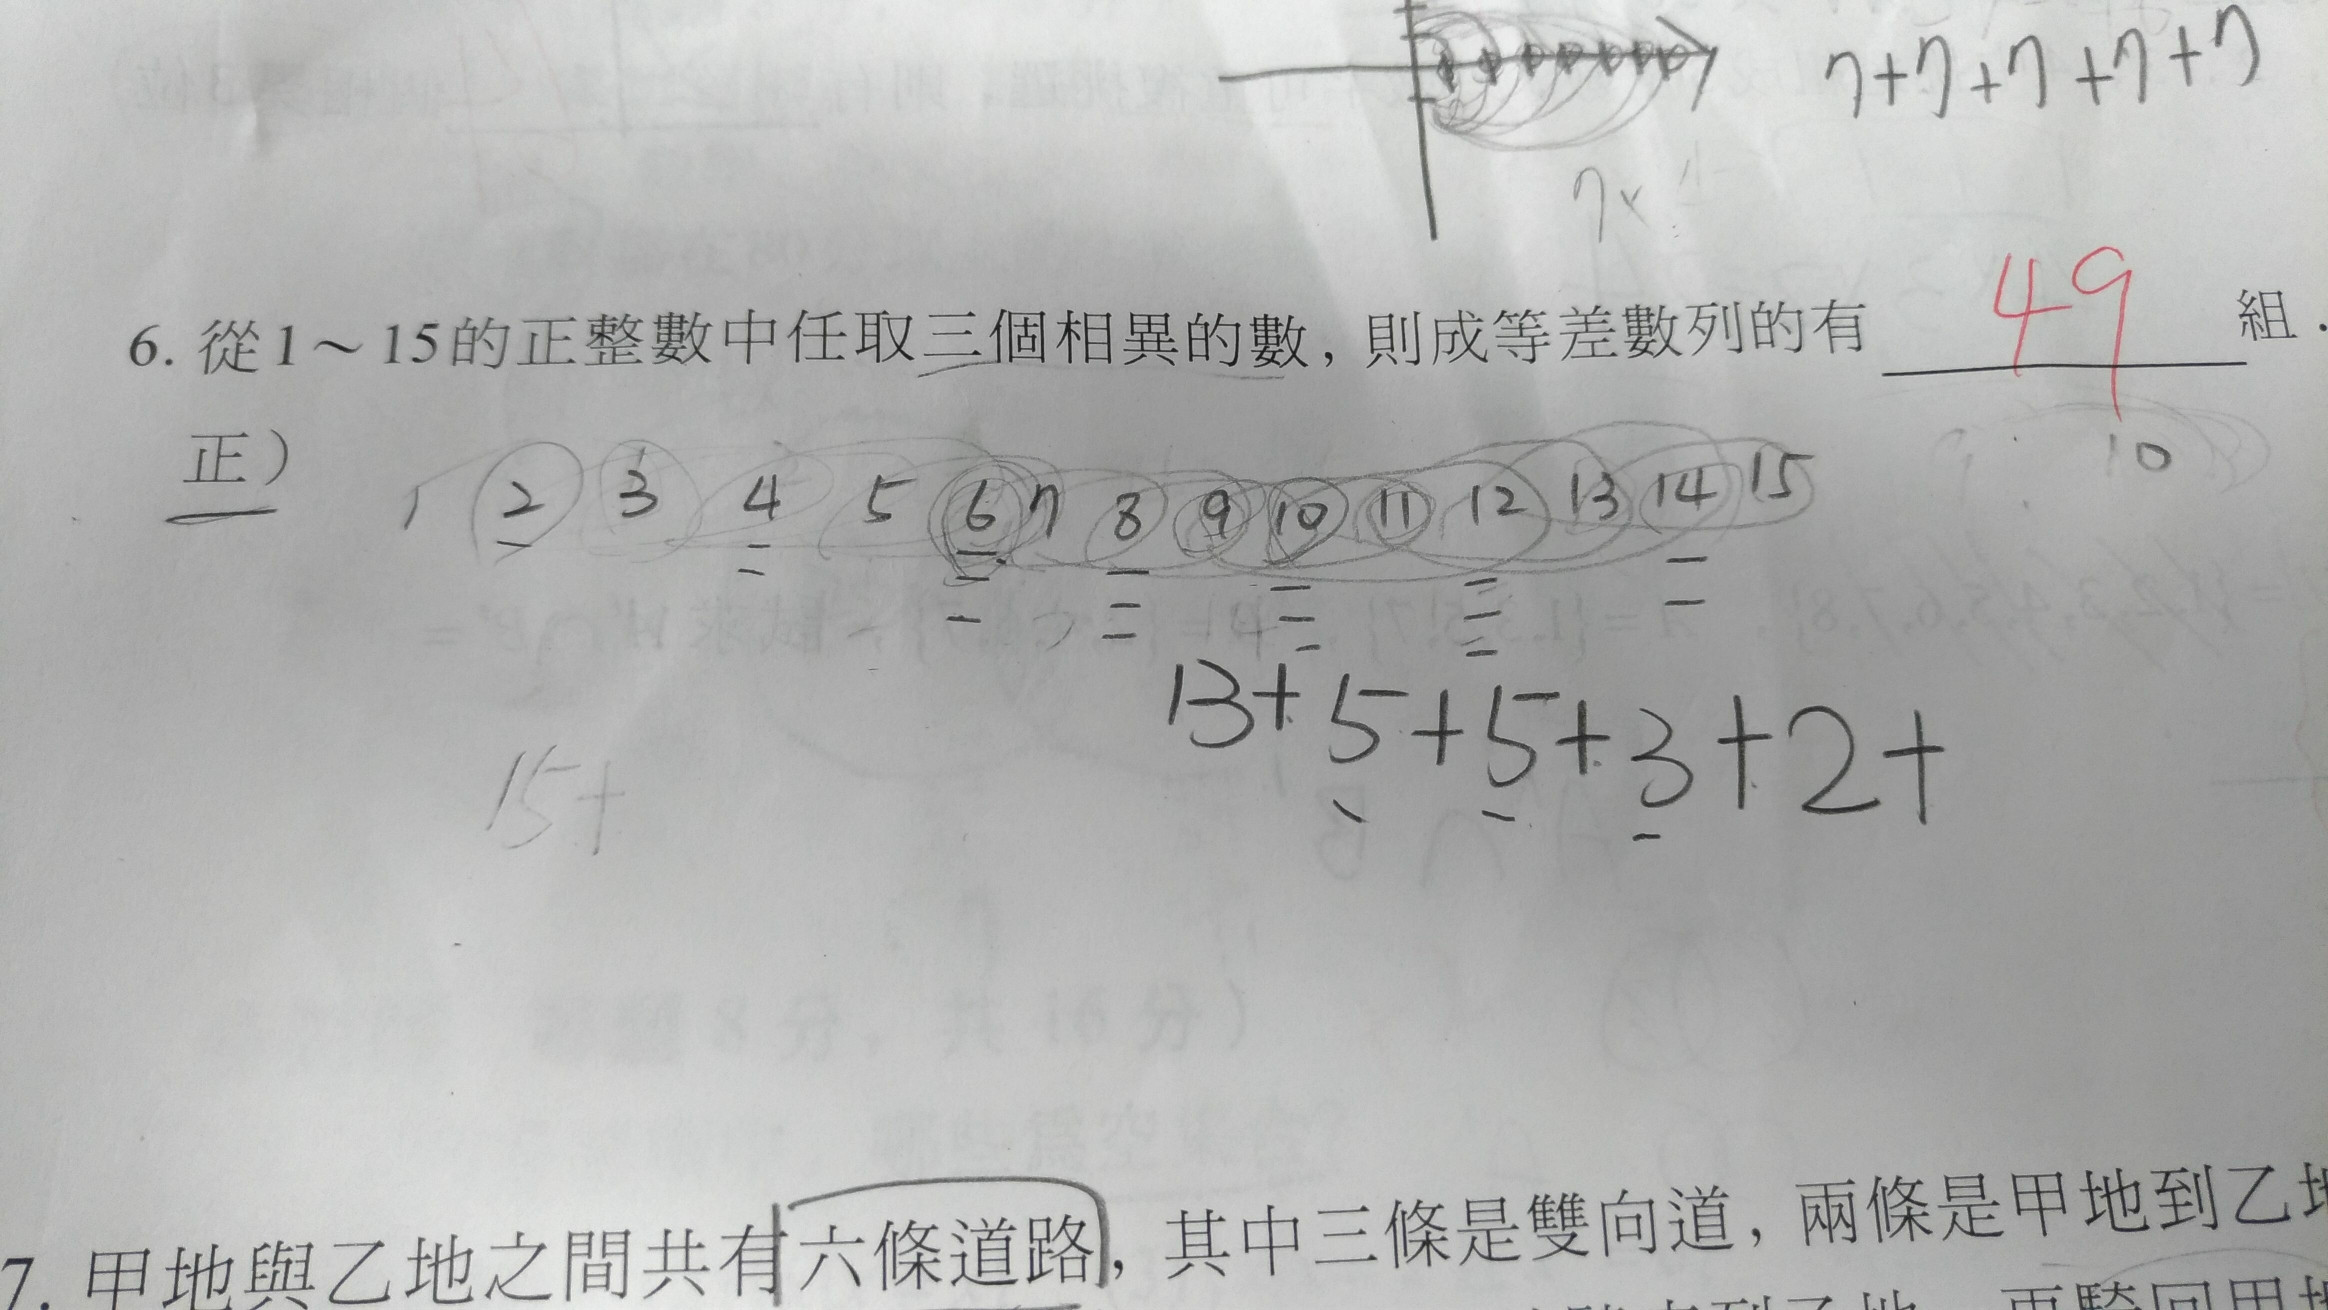 7+7+7+7+7
7×
6. 從1～15的正整數中任取三個相異的數, 則成等差數列的有 49 組.
10
正)
1 2 3 4 5 6 7 8 9 10 11 12 13 14 15
13+5+5+3+2+
15+
7. 甲地與乙地之間共有六條道路, 其中三條是雙向道, 兩條是甲地到乙地